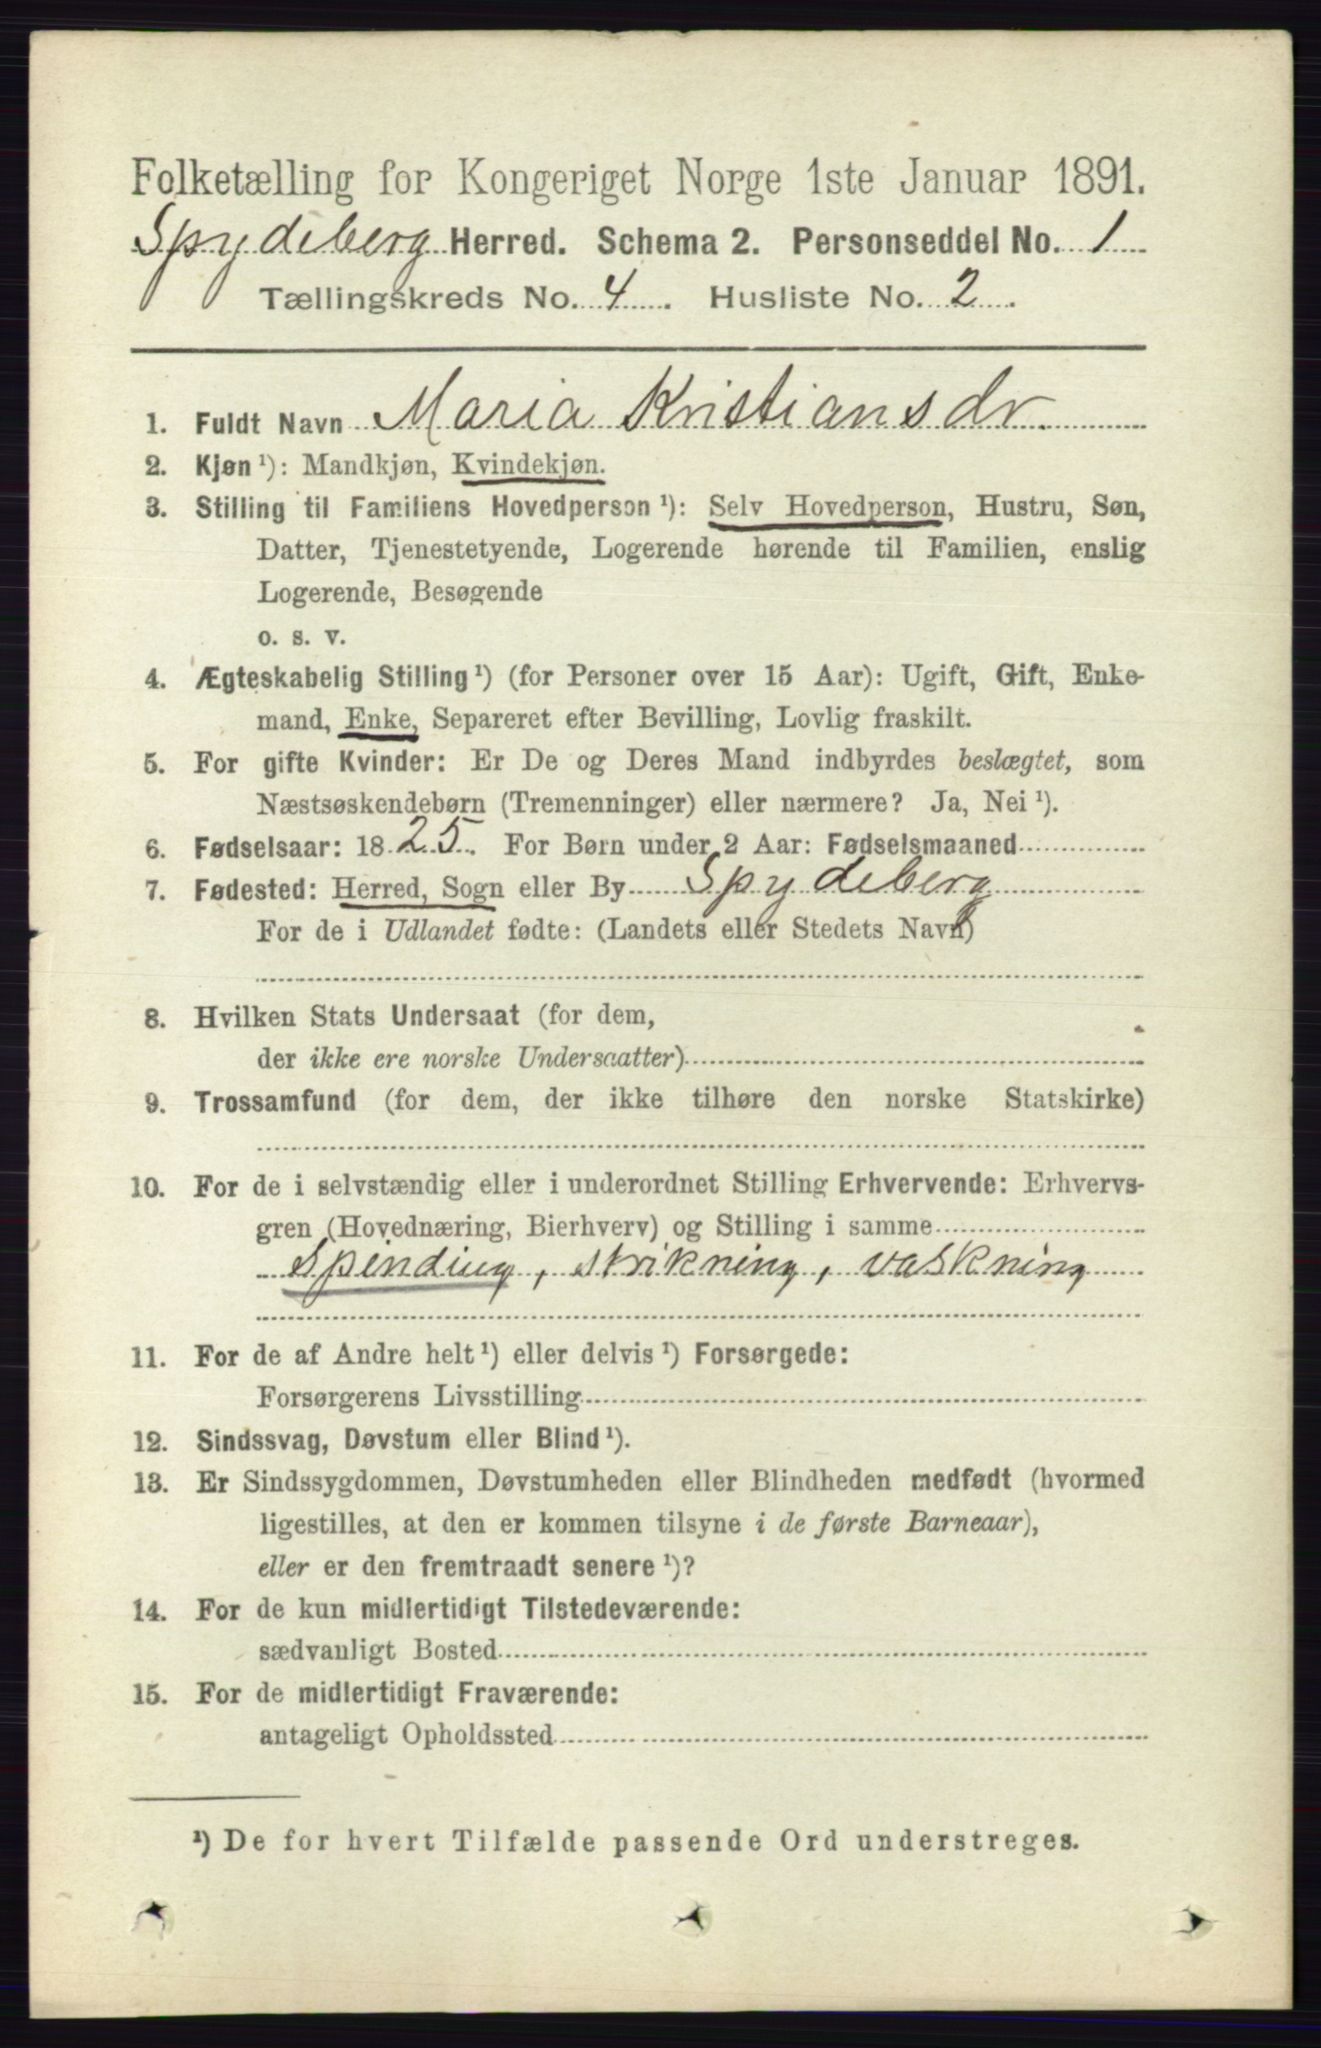 Folketælling for Kongeriget Norge 1ste Januar 1891.
Spydeberg Herred. Schema 2. Personseddel No. 1
Tællingskreds No. 4. Husliste No. 2.
1. Fuldt Navn Maria Kristiansdr.
2. Kjøn ¹): Mandkjøn, Kvindekjøn.
3. Stilling til Familiens Hovedperson ¹): Selv Hovedperson, Hustru, Søn,
Datter, Tjenestetyende, Logerende hørende til Familien, enslig
Logerende, Besøgende
o. s. v.
4. Ægteskabelig Stilling ¹) (for Personer over 15 Aar): Ugift, Gift, Enke-
mand, Enke, Separeret efter Bevilling, Lovlig fraskilt.
5. For gifte Kvinder: Er De og Deres Mand indbyrdes beslægtet, som
Næstsøskendebørn (Tremenninger) eller nærmere? Ja, Nei ¹).
6. Fødselsaar: 1825. For Børn under 2 Aar: Fødselsmaaned
7. Fødested: Herred, Sogn eller By Spydeberg
For de i Udlandet fødte: (Landets eller Stedets Navn)
8. Hvilken Stats Undersaat (for dem,
der ikke ere norske Undersaatter)
9. Trossamfund (for dem, der ikke tilhøre den norske Statskirke)
10. For de i selvstændig eller i underordnet Stilling Erhvervende: Erhvervs-
gren (Hovednæring, Bierhverv) og Stilling i samme
Spinding, strikning, vaskning
11. For de af Andre helt ¹) eller delvis ¹) Forsørgede:
Forsørgerens Livsstilling
12. Sindssvag, Døvstum eller Blind ¹).
13. Er Sindssygdommen, Døvstumheden eller Blindheden medfødt (hvormed
ligestilles, at den er kommen tilsyne i de første Barneaar),
eller er den fremtraadt senere ¹)?
14. For de kun midlertidigt Tilstedeværende:
sædvanligt Bosted
15. For de midlertidigt Fraværende:
antageligt Opholdssted
¹) De for hvert Tilfælde passende Ord understreges.